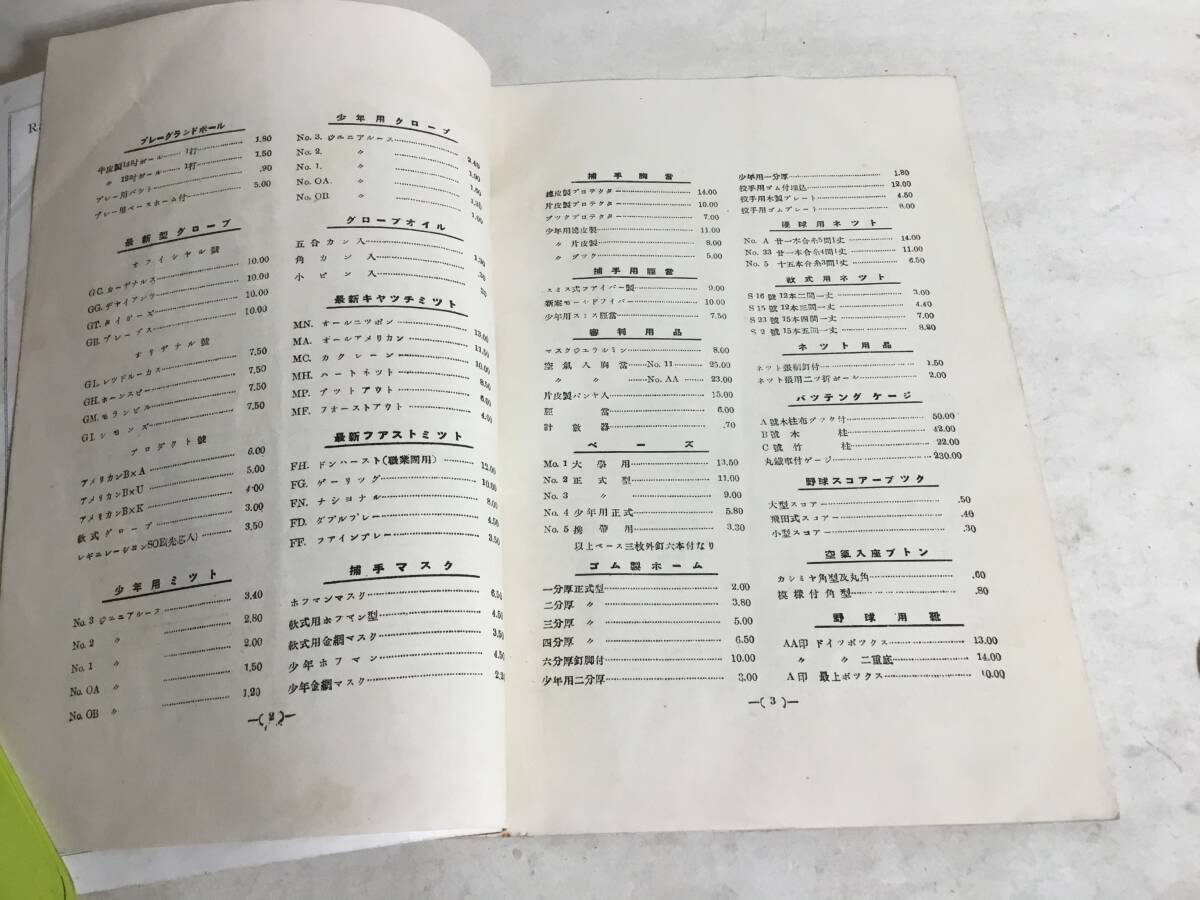 プレーグランドボール
牛皮製14吋ボール……1打……1.80
〃 12吋ボール……1打……1.50
プレー用バット…….90
プレー用ベースホーム付……5.00
最新型グローブ
オフイシヤル號
GC. カーヂナルス……10.00
GG. ヂヤイアンツ……10.00
GT. タイガース……10.00
GB. ブレーブス……10.00
オリヂナル號
GL. レツドルーカス……7.50
GH. ホーンスビー……7.50
GM. モランビル……7.50
GI. シモンズ……7.50
プロダクト號
アメリカンB×A……6.00
アメリカンB×U……5.00
アメリカンB×K……4.00
軟式グローブ……3.00
レギユレーシヨンSOE(先芯入)……3.50
少年用ミツト
No. 3 ジユニアルース……3.40
No. 2 〃……2.80
No. 1 〃……2.00
No. OA 〃……1.50
No. OB 〃……1.20
少年用グローブ
No. 3. ジユニアルース……2.40
No. 2. 〃
No. 1. 〃
No. OA. 〃
No. OB. 〃
グローブオイル
五合カン入
角カン入
小ビン入
最新キヤツチミツト
MN. オールニツポン……13.00
MA. オールアメリカン……11.50
MC. カクレーン……10.00
MH. ハートネツト……8.50
MP. プツトアウト……6.00
MF. フオーストアウト……4.00
最新フアストミツト
FH. ドンハースト(職業團用)……12.00
FG. ゲーリツグ……10.00
FN. ナシヨナル……8.00
FD. ダブルプレー……4.50
FF. フアインプレー……3.50
捕手マスク
ホフマンマスク……6.50
軟式用ホフマン型……4.50
軟式用金網マスク……3.50
少年ホフマン……4.50
少年金網マスク
—(2)—
捕手胸當
總皮製プロテクター……14.00
片皮製プロテクター……10.00
ヅックプロテクター……7.00
少年用總皮製……11.00
〃 片皮製……8.00
〃 ヅック……5.00
捕手用脛當
スミス式フアイバー製……9.00
新案モールドフイバー……10.00
少年用スミス脛當……7.50
審判用品
マスクジユラルミン……8.00
空氣入胸當……No. 11……25.00
〃 〃……No. AA……23.00
片皮製バンヤ入……15.00
脛當……6.00
計數器…….70
ベーズ
Mo. 1 大學用……13.50
No. 2 正式型……11.00
No. 3 〃……9.00
No. 4 少年用正式……5.80
No. 5 携帶用……3.30
以上ベース三枚外釘六本付なり
ゴム製ホーム
一分厚正式型……2.00
二分厚 〃……3.80
三分厚 〃……5.00
四分厚 〃……6.50
六分厚釘脚付……10.00
少年用二分厚……3.00
少年用一分厚……1.80
投手用ゴム付埋込……12.00
投手用木製プレート……4.50
投手用ゴムプレート……8.00
硬球用ネツト
No. A 廿一本合糸5間1丈……14.00
No. 33 廿一本合糸4間1丈……11.00
No. 5 十五本合糸3間1丈……6.50
軟式用ネツト
S 16 號 12本二間一丈……3.00
S 15 號 12本三間一丈……4.40
S 23 號 15本四間一丈……7.00
S 2 號 15本五間一丈……8.20
ネツト用品
ネツト張棡釘付……1.50
ネツト張用二ツ折ポール……2.00
バツテングケージ
A號木柱布ヅック付……50.00
B號木柱……42.00
C號竹柱……22.00
丸鐵車付ゲージ……230.00
野球スコアーブツク
大型スコアー…….50
飛田式スコアー…….40
小型スコアー…….30
空氣入座ブトン
カシミヤ角型及丸角…….60
模樣付角型…….80
野球用靴
AA印 ドイツボツクス……13.00
〃 〃 二重底……14.00
A印 最上ボツクス
—(3)—